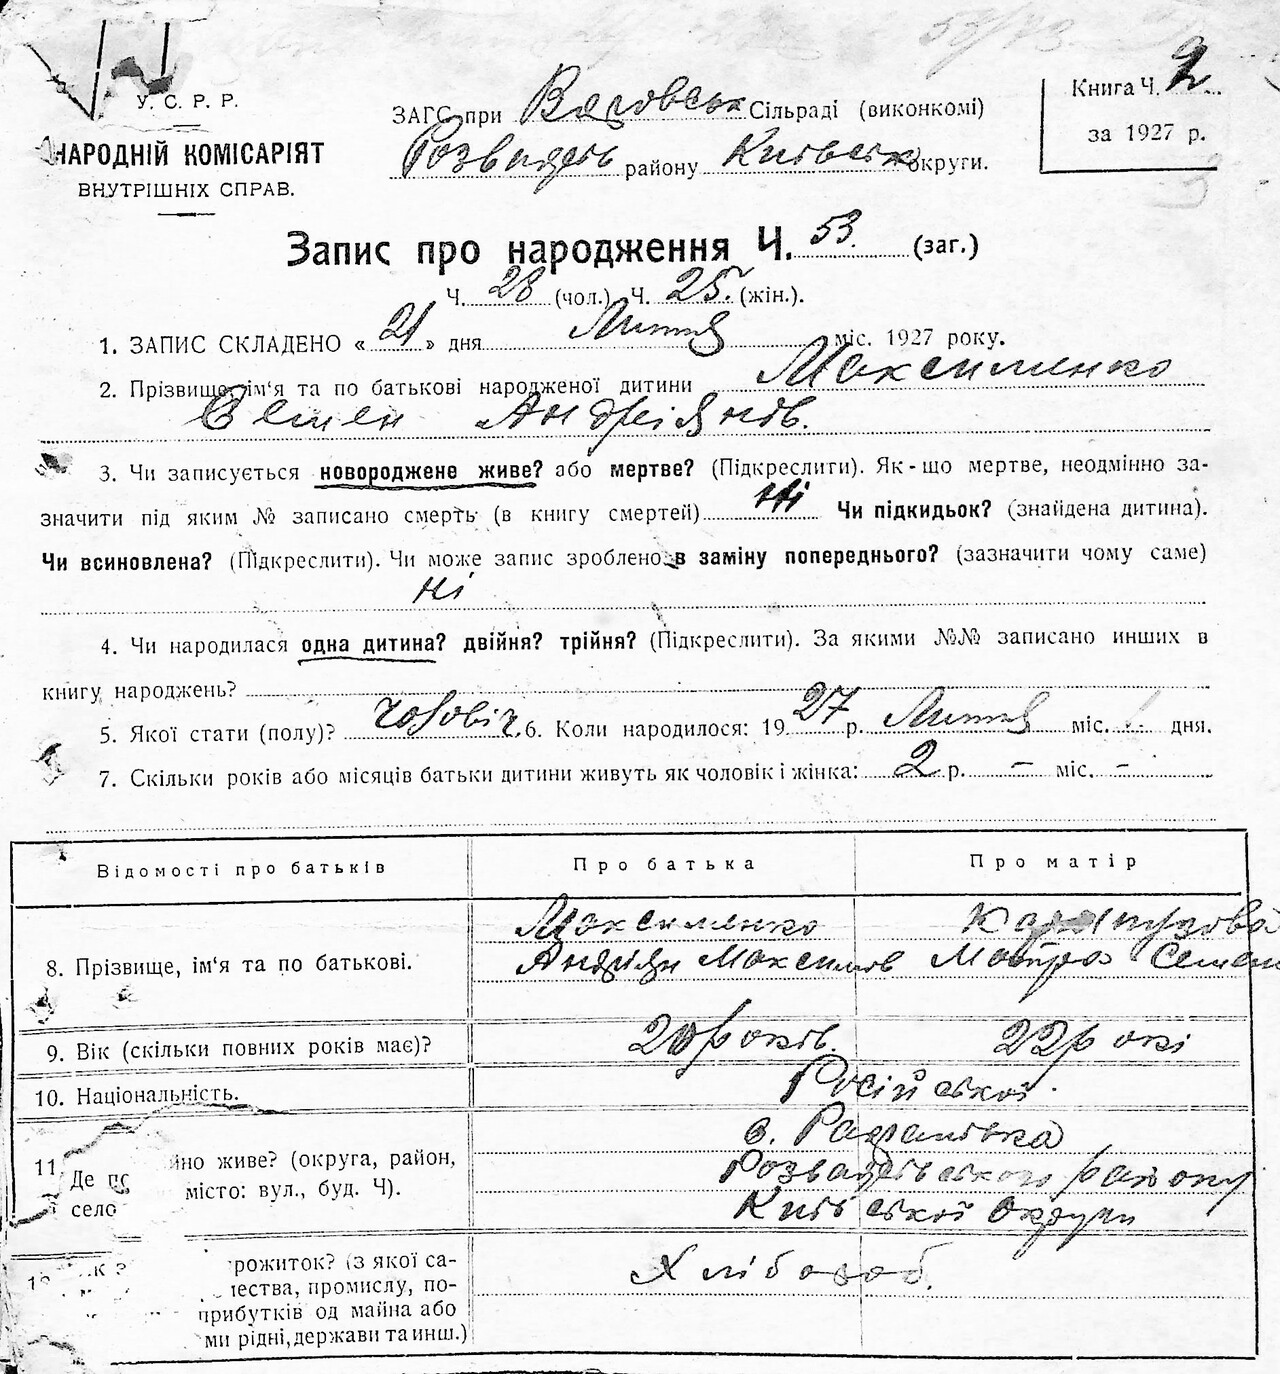 У. С. Р. Р.
НАРОДНІЙ КОМІСАРІЯТ
ВНУТРІШНІХ СПРАВ.
ЗАГС при Сільраді (виконкомі)
району Київськ округи.
Книга Ч. 2
за 1927 р.
Запис про народження Ч. 53. (заг.)
Ч. 28 (чол.) Ч. 25. (жін.).
1. ЗАПИС СКЛАДЕНО « 21 » дня Липня міс. 1927 року.
2. Прізвище, ім'я та по батькові народженої дитини Максименко
Семен Андріянов.
3. Чи записується новороджене живе? або мертве? (Підкреслити). Як-що мертве, неодмінно за-
значити під яким № записано смерть (в книгу смертей) Ні Чи підкидьок? (знайдена дитина).
Чи всиновлена? (Підкреслити). Чи може запис зроблено в заміну попереднього? (зазначити чому саме)
ні
4. Чи народилася одна дитина? двійня? трійня? (Підкреслити). За якими №№ записано инших в
книгу народжень?
5. Якої стати (полу)? чоловіч. 6. Коли народилося: 19 27 р. Липня міс. дня.
7. Скільки років або місяців батьки дитини живуть як чоловік і жінка: 2 р. – міс. –
Відомості про батьків Про батька Про матір
8. Прізвище, ім'я та по батькові.
Максименко
Андріян Максимов Мотря Семен
9. Вік (скільки повних років має)? 20 років. 22 рокі
10. Національність. Російської.
11. Де по йно живе? (округа, район,
село місто: вул., буд. Ч).
с.
району
Київської Округи
рожиток? (з якої са-
чества, промислу, по-
прибутків од майна або
ми рідні, держави та инш.)
Хлібороб.